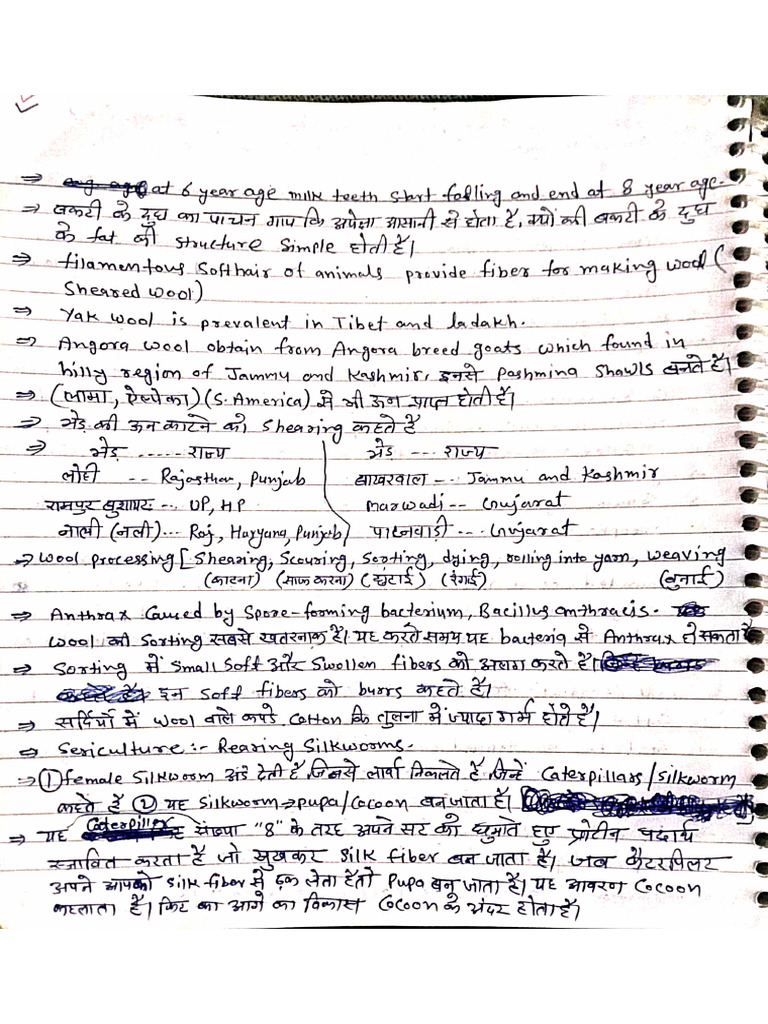 ⇒ at 6 year age milk teeth start falling and end at 8 year age.
⇒ बकरी के दुध का पाचन गाय कि अपेक्षा आसानी से होता है, क्यों की बकरी के दुध
के fat की structure simple होती है।
⇒ filamentous Softhair of animals provide fiber for making wool (
Sheared wool)
⇒ Yak wool is prevalent in Tibet and ladakh.
⇒ Angora wool obtain from Angora breed goats which found in
hilly region of Jammu and Kashmir, इनसे Pashmina Shawls बनते है।
⇒ (लामा, ऐल्पेका) (S. America) से भी ऊन प्राप्त होती है।
⇒ भेड़ की ऊन काटने को Shearing कहते है
⇒ भेड़ ----- राज्य भेड़ --- राज्य
लोही -- Rajasthan, Punjab बाखरवाल --- Jammu and Kashmir
रामपुर बुशायर --- UP, H.P Marwadi -- Gujarat
नाली (नली)--- Raj, Haryana, Punjab पाटनवाडी --- Gujarat
⇒ Wool processing [ Shearing, Scouring, Sorting, dying, rolling into yarn, weaving
(काटना) (साफ करना) (छंटाई) (रंगाई) (बुनाई)
⇒ Anthrax Caused by Spore-forming bacterium, Bacillus anthracis.
Wool की Sorting सबसे खतरनाक है। यह करते समय यह bacteria से Anthrax हो सकता है
⇒ Sorting में Small Soft और Swollen fibers को अलग करते है।
इन Soff fibers को burrs कहते है।
⇒ सर्दियों में wool वाले कपडे Cotton कि तुलना में ज्यादा गर्म होते है।
⇒ Sericulture :- Rearing Silkworms.
⇒ ① female Silkworm अंडे देती है जिनसे लार्वा निकलते है, जिन्हें Caterpillars/silkworm
कहते है ② यह Silkworm → pupa/Cocoon बन जाता है।
⇒ यह Caterpiller संख्या "8" के तरह अपने सर को घुमाते हुए प्रोटीन पदार्थ
स्त्रावित करता है जो सुखकर Silk fiber बन जाता है। जब कैटरपिलर
अपने आपको silk fiber से ढ़क लेता है तो Pupa बन जाता है। यह आवरण Cocoon
कहलाता है। किट का आगे का विकास Cocoon के अंदर होता है।